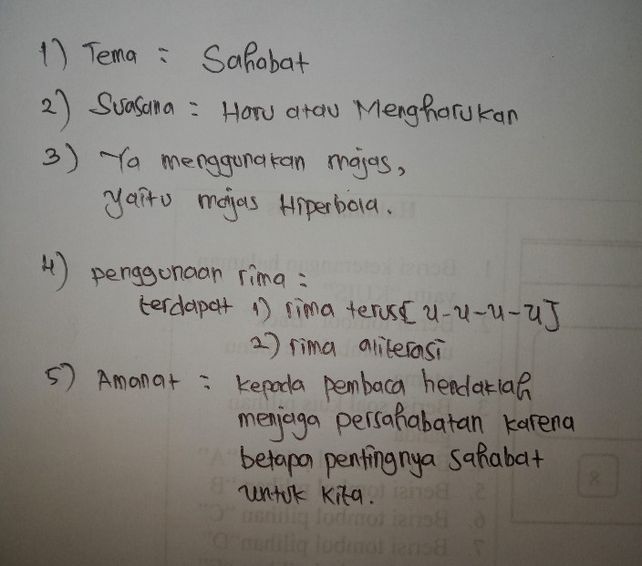 1) Tema : Sahabat
2) Suasana : Haru atau Mengharukan
3) Ya menggunakan majas,
yaitu majas Hiperbola.
4) penggunaan rima :
terdapat 1) rima terus [u-u-u-u]
2) rima aliterasi
5) Amanat : kepada pembaca hendaklah
menjaga persahabatan karena
betapa pentingnya sahabat
untuk kita.